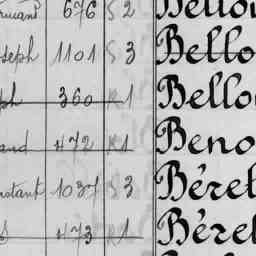 676 S 2 Bello
seph 1101 S 3 Bello
ph 360 R 1 Bello
and 472 R 1 Beno
nstant 1037 S 3 Béret
s 473 R 1 Béret